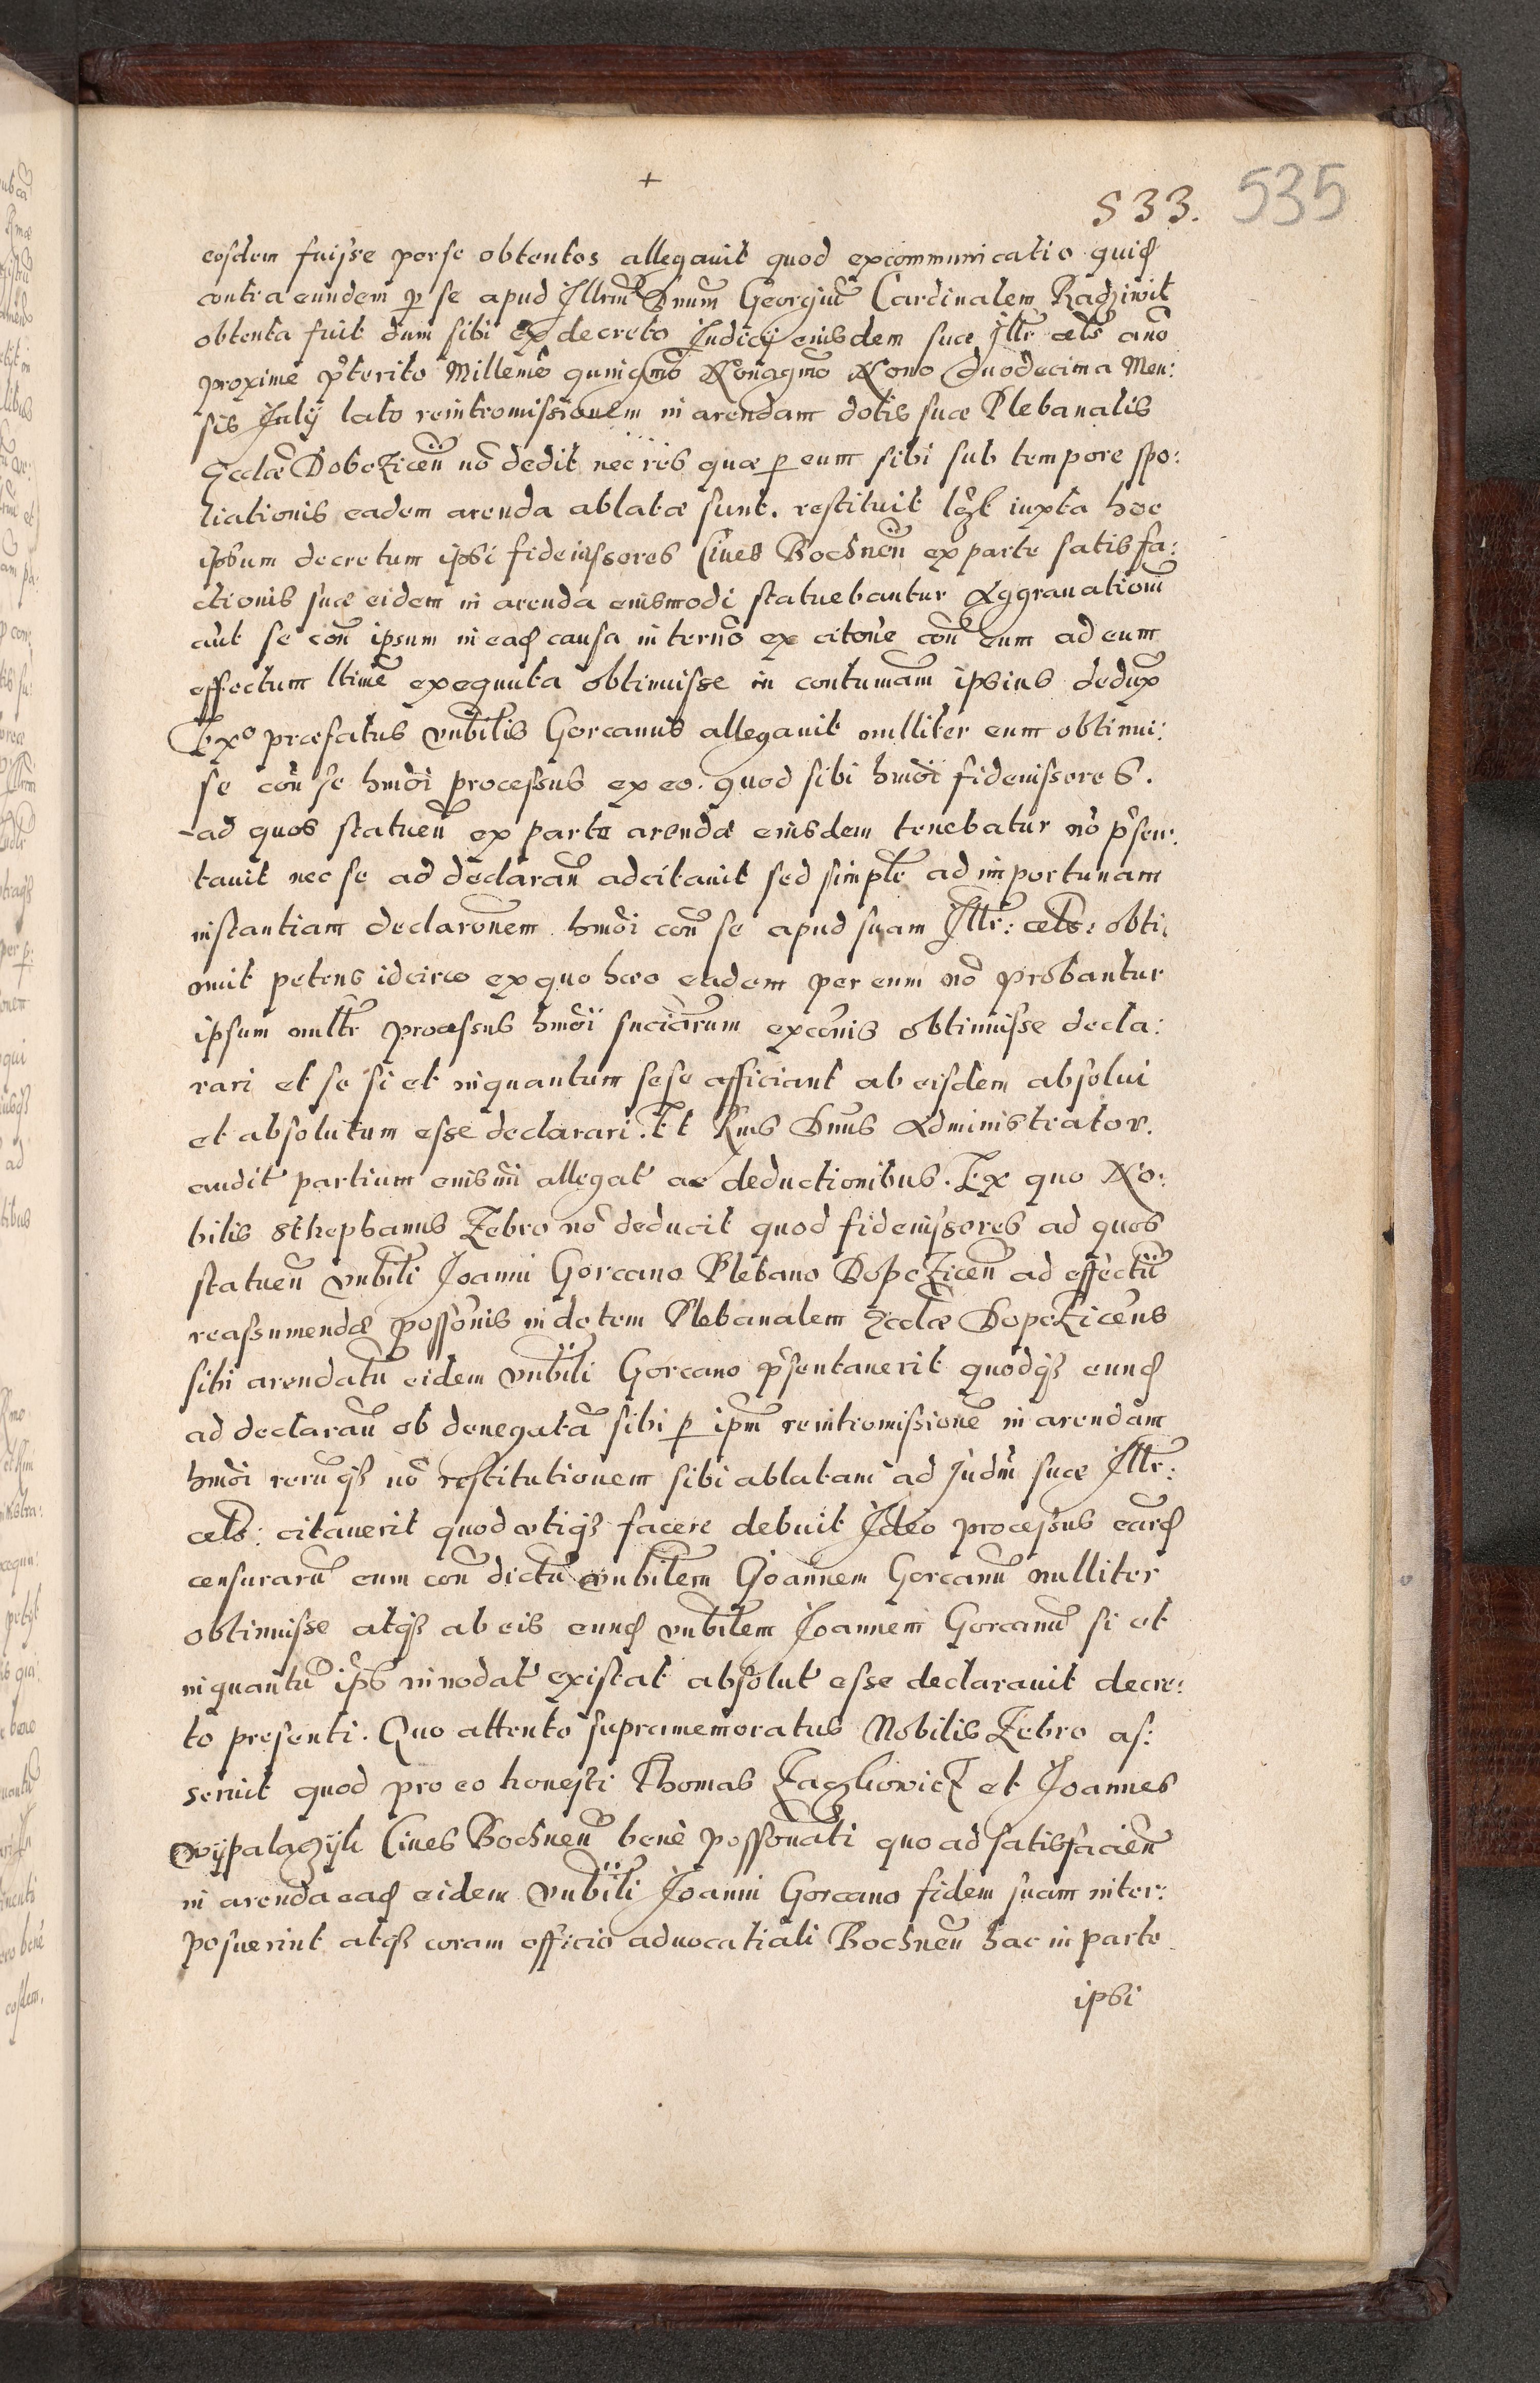 +
533. 535
eosdem fuisse per se obtentos allegauit quod excommunicatio quid
contra eundem p se apud Illrm Dnum Georgiũ Cardinalem Radziwił
obtenta fuit dum sibi ex decreto Iudicij eiusdem suæ Illr cels año
proxime pterito Millemo quingmo Nonagmo Nono duodecima Men:
sis Iulij lato reintromissionem in arendam dotis suæ Plebanalis
Ecclæ Dobcziceñ nõ dedit nec res quæ p eum sibi sub tempore spo:
liationis eadem arenda ablatæ sunt. restituit lzt iuxta hoc
ipsum decretum ipsi fideiussores Ciues Bochneñ ex parte satisfa:
ctionis suæ eidem in arenda eiusmodi statuebantur Aggrauationũ
aũt se coñ ipsum in ead causa in ternõ ex citõne coñ eum ad eum
effectum ltime exequuta obtinuisse in contumam ipsius dedux
Exo præfatus vnbilis Gorcanus allegauit nulliter eum obtinui:
se coñ se hmõi processus ex eo. quod sibi hmõi fideiussores.
ad quos statueñ ex parte arendæ eiusdem tenebatur nõ psen:
tauit nec se ad declaranũ adcitauit sed simplr ad importunam
instantiam declaronem hmõi coñ se apud suam Illr: cels: obti,
nuit petens idcirco ex quo hæc eadem per eum nõ probantur
ipsum nulltr processus hmõi suarum exconis obtinuisse decla:
rari et se si et inquantum sese afficiant ab eisdem absolui
et absolutum esse declarari. Et Rmus Dnus Administrator.
audit partium eiusmi allegat ac deductionibus. Ex quo No:
bilis Sthephanus Zebro nõ deducit quod fideiussores ad quos
statueñ vnbili Joanni Gorcano Plebano Dopcziceñ ad effectũ
reassumendæ possonis in dotem Plebanalem Ecclæ Dopczicens
sibi arendatũ eidem vnbili Gorcano psentauerit quodq3 eund
ad declaranũ ob denegatã sibi p ipm reintromissionẽ in arendam
hmõi rerũq3 nõ restitutionem sibi ablatam ad Judm suæ Illr:
cels: citauerit quod vtiq3 facere debuit Ideo processus eard
censurarũ eum coñ dictũ vnbilem Joannem Gorcanũ nulliter
obtinuisse atq3 ab eis eund vnbilem Joannem Gorcanũ si et
inquantũ ips innodat existat absolut esse declarauit decre:
to presenti. Quo attento supramemoratus Nobilis Zebro as:
seruit quod pro eo honesti Thomas et Joannes
Ciues Bochneñ bene possonati quo ad satisfacieñ
in arenda ead eidem vnbili Joanni Gorcano fidem suam inter:
posuerint atq3 coram officio aduocatiali Bochneñ hac in parte
ipsi